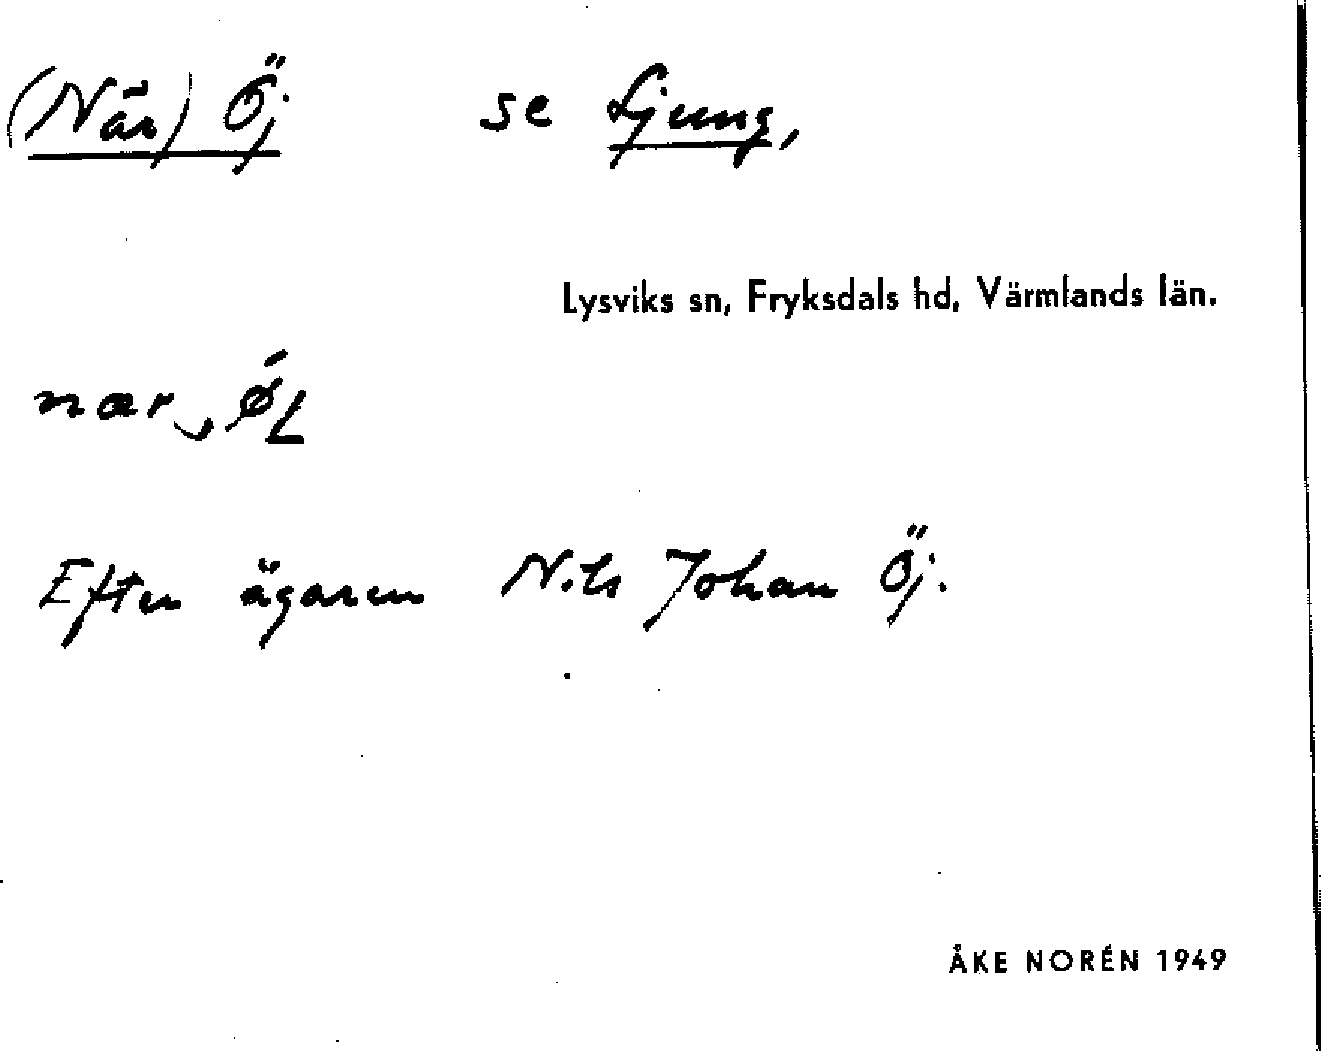 (När) Öj se Ljung,
Lysviks sn, Fryksdals hd, Värmlands län.
nær
Efter ägaren Nils Johan Öj.
ÅKE NORÉN 1949